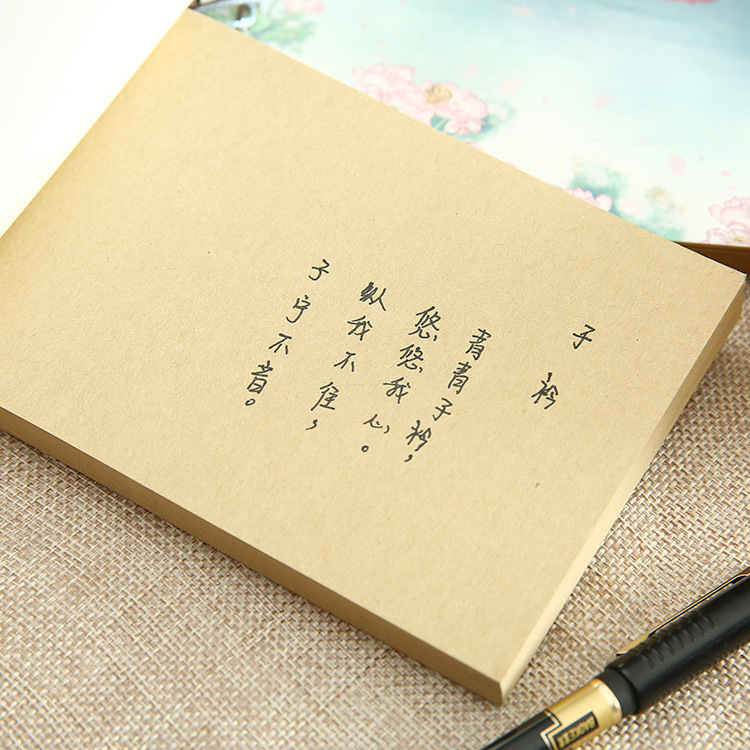 子衿
青青子衿，
悠悠我心。
纵我不佳，
子宁不音。